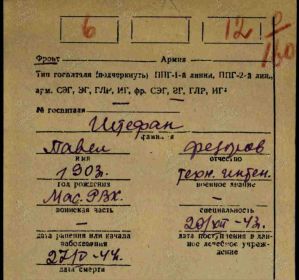 6 12
Фронт Армия
Тип госпиталя (подчеркнуть) ППГ-1-й линии, ППГ-2-й лин.,
арм. СЭГ, ЭГ, ГЛР, ИГ, фр. СЭГ, ЭГ, ГЛР, ИГ
№ госпиталя
Штефан
фамилия
Павел Федоров
имя отчество
1903. техн. интен.
год рождения военное звание
Мос. РВК. –
воинская часть специальность
– 29/XII-43.
дата ранения или начала дата поступления в дан-
заболевания ное лечебное учреж-
27/V-44. дение
дата смерти